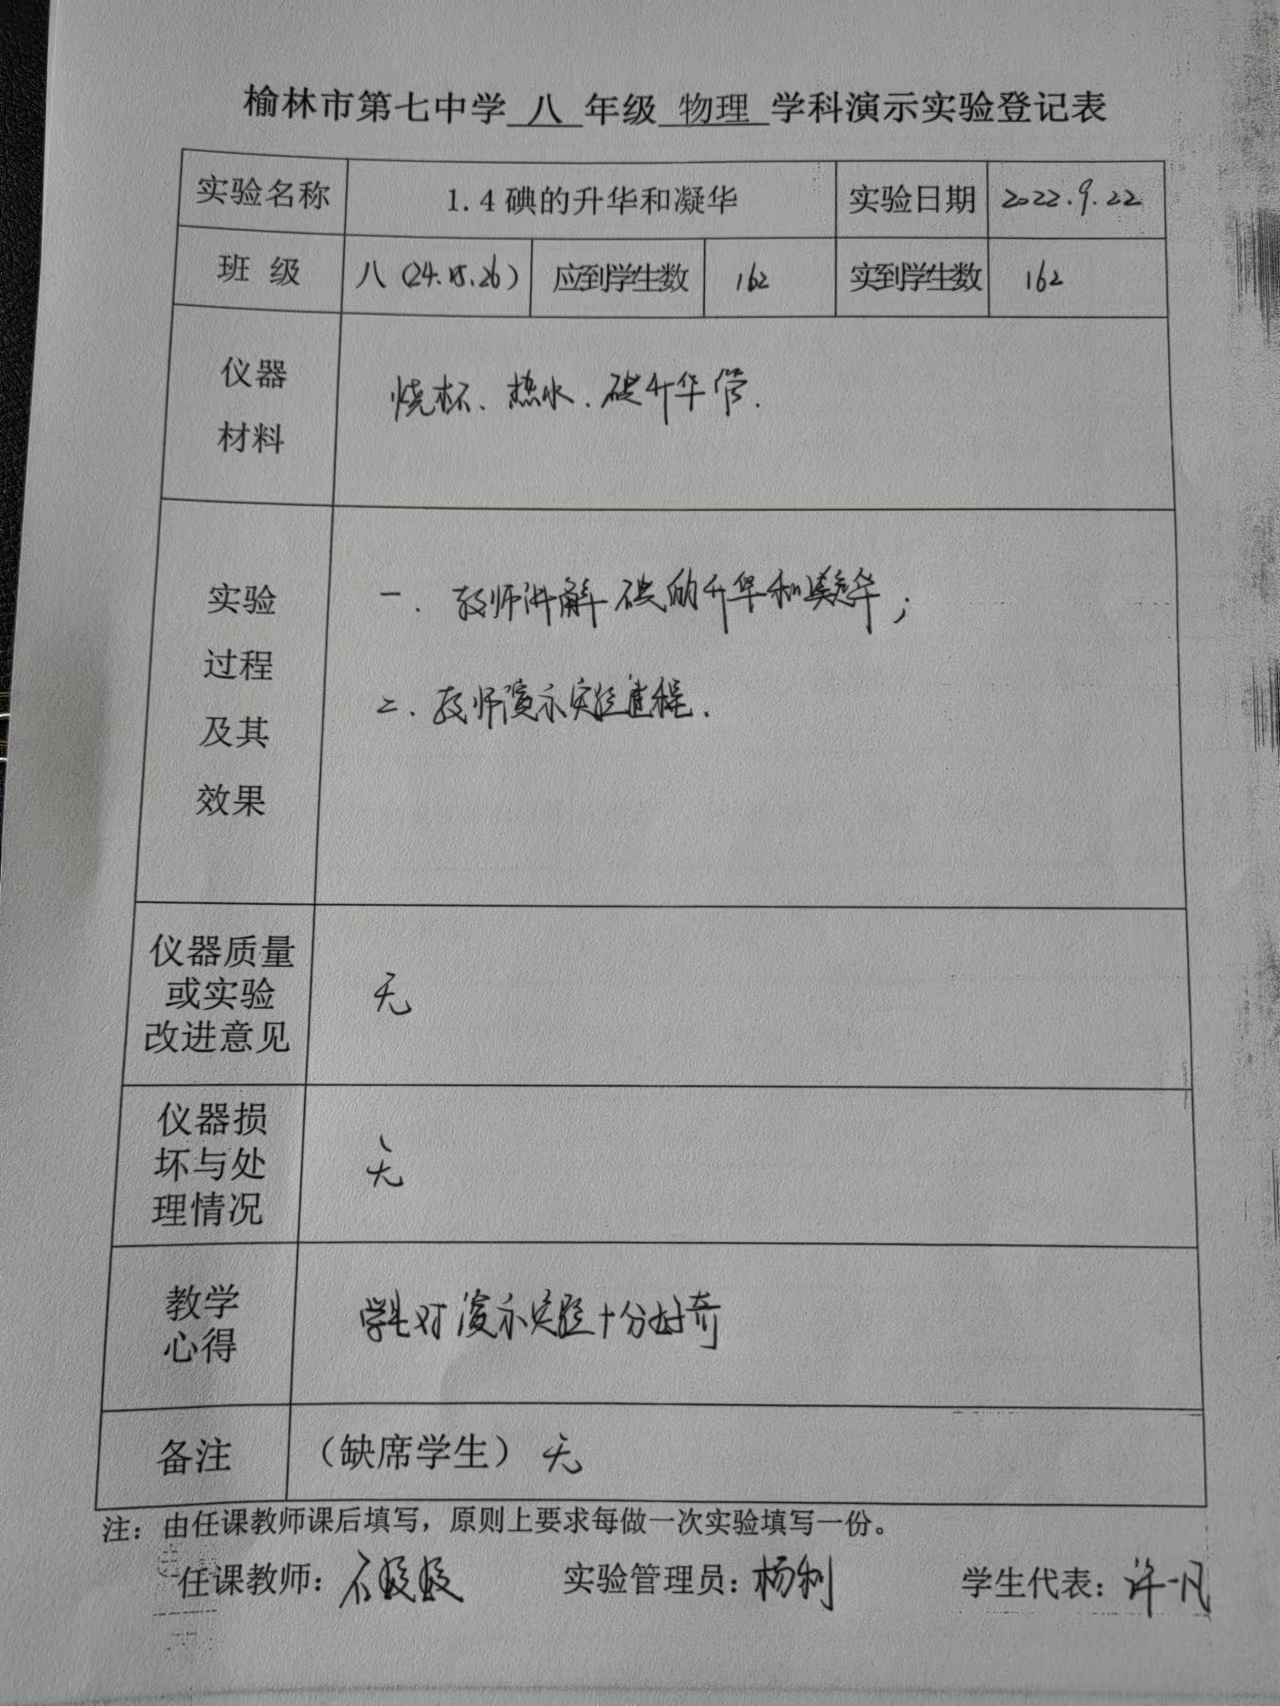 榆林市第七中学 八 年级 物理 学科演示实验登记表
实验名称 1.4碘的升华和凝华 实验日期 2022.9.22
班 级 八(24.25.26) 应到学生数 162 实到学生数 162
仪器
材料
烧杯、热水、碘升华管.
实验
过程
及其
效果
一. 教师讲解碘的升华和凝华;
二. 教师演示实验过程.
仪器质量
或实验
改进意见
无
仪器损
坏与处
理情况
无
教学
心得
学生对演示实验十分好奇
备注 (缺席学生) 无
注: 由任课教师课后填写,原则上要求每做一次实验填写一份。
任课教师: 实验管理员: 杨利 学生代表: 许一凡